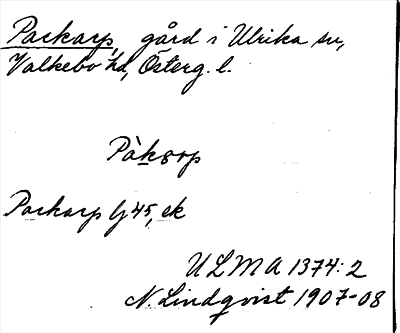 Packarp, gård i Ulrika sn,
Valkebo hd, Österg. l.
Pàkrop
Packarp Gj 45, ek
ULMA 1374:2
N. Lindqvist 1907-08